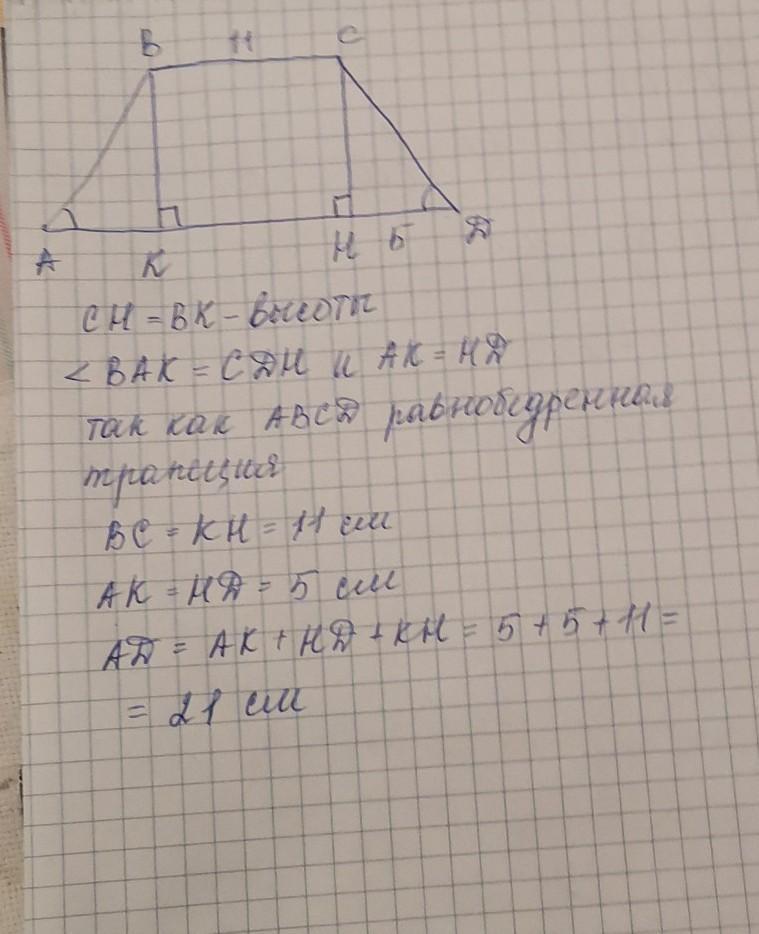 B 11 C
A K H 5 D
CH = BK - высоты
< BAK = CDH и AK = HD
так как ABCD равнобедренная
трапеция
BC = KH = 11 см
AK = HD = 5 см
AD = AK + HD + KH = 5 + 5 + 11 =
= 21 см